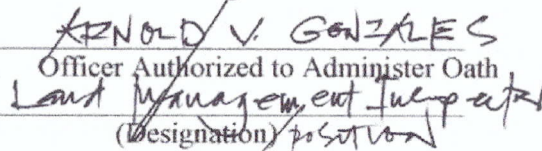 ARNOLD V. GONZALES
Officer Authorized to Administer Oath
Land Management Inspector
(Designation) position